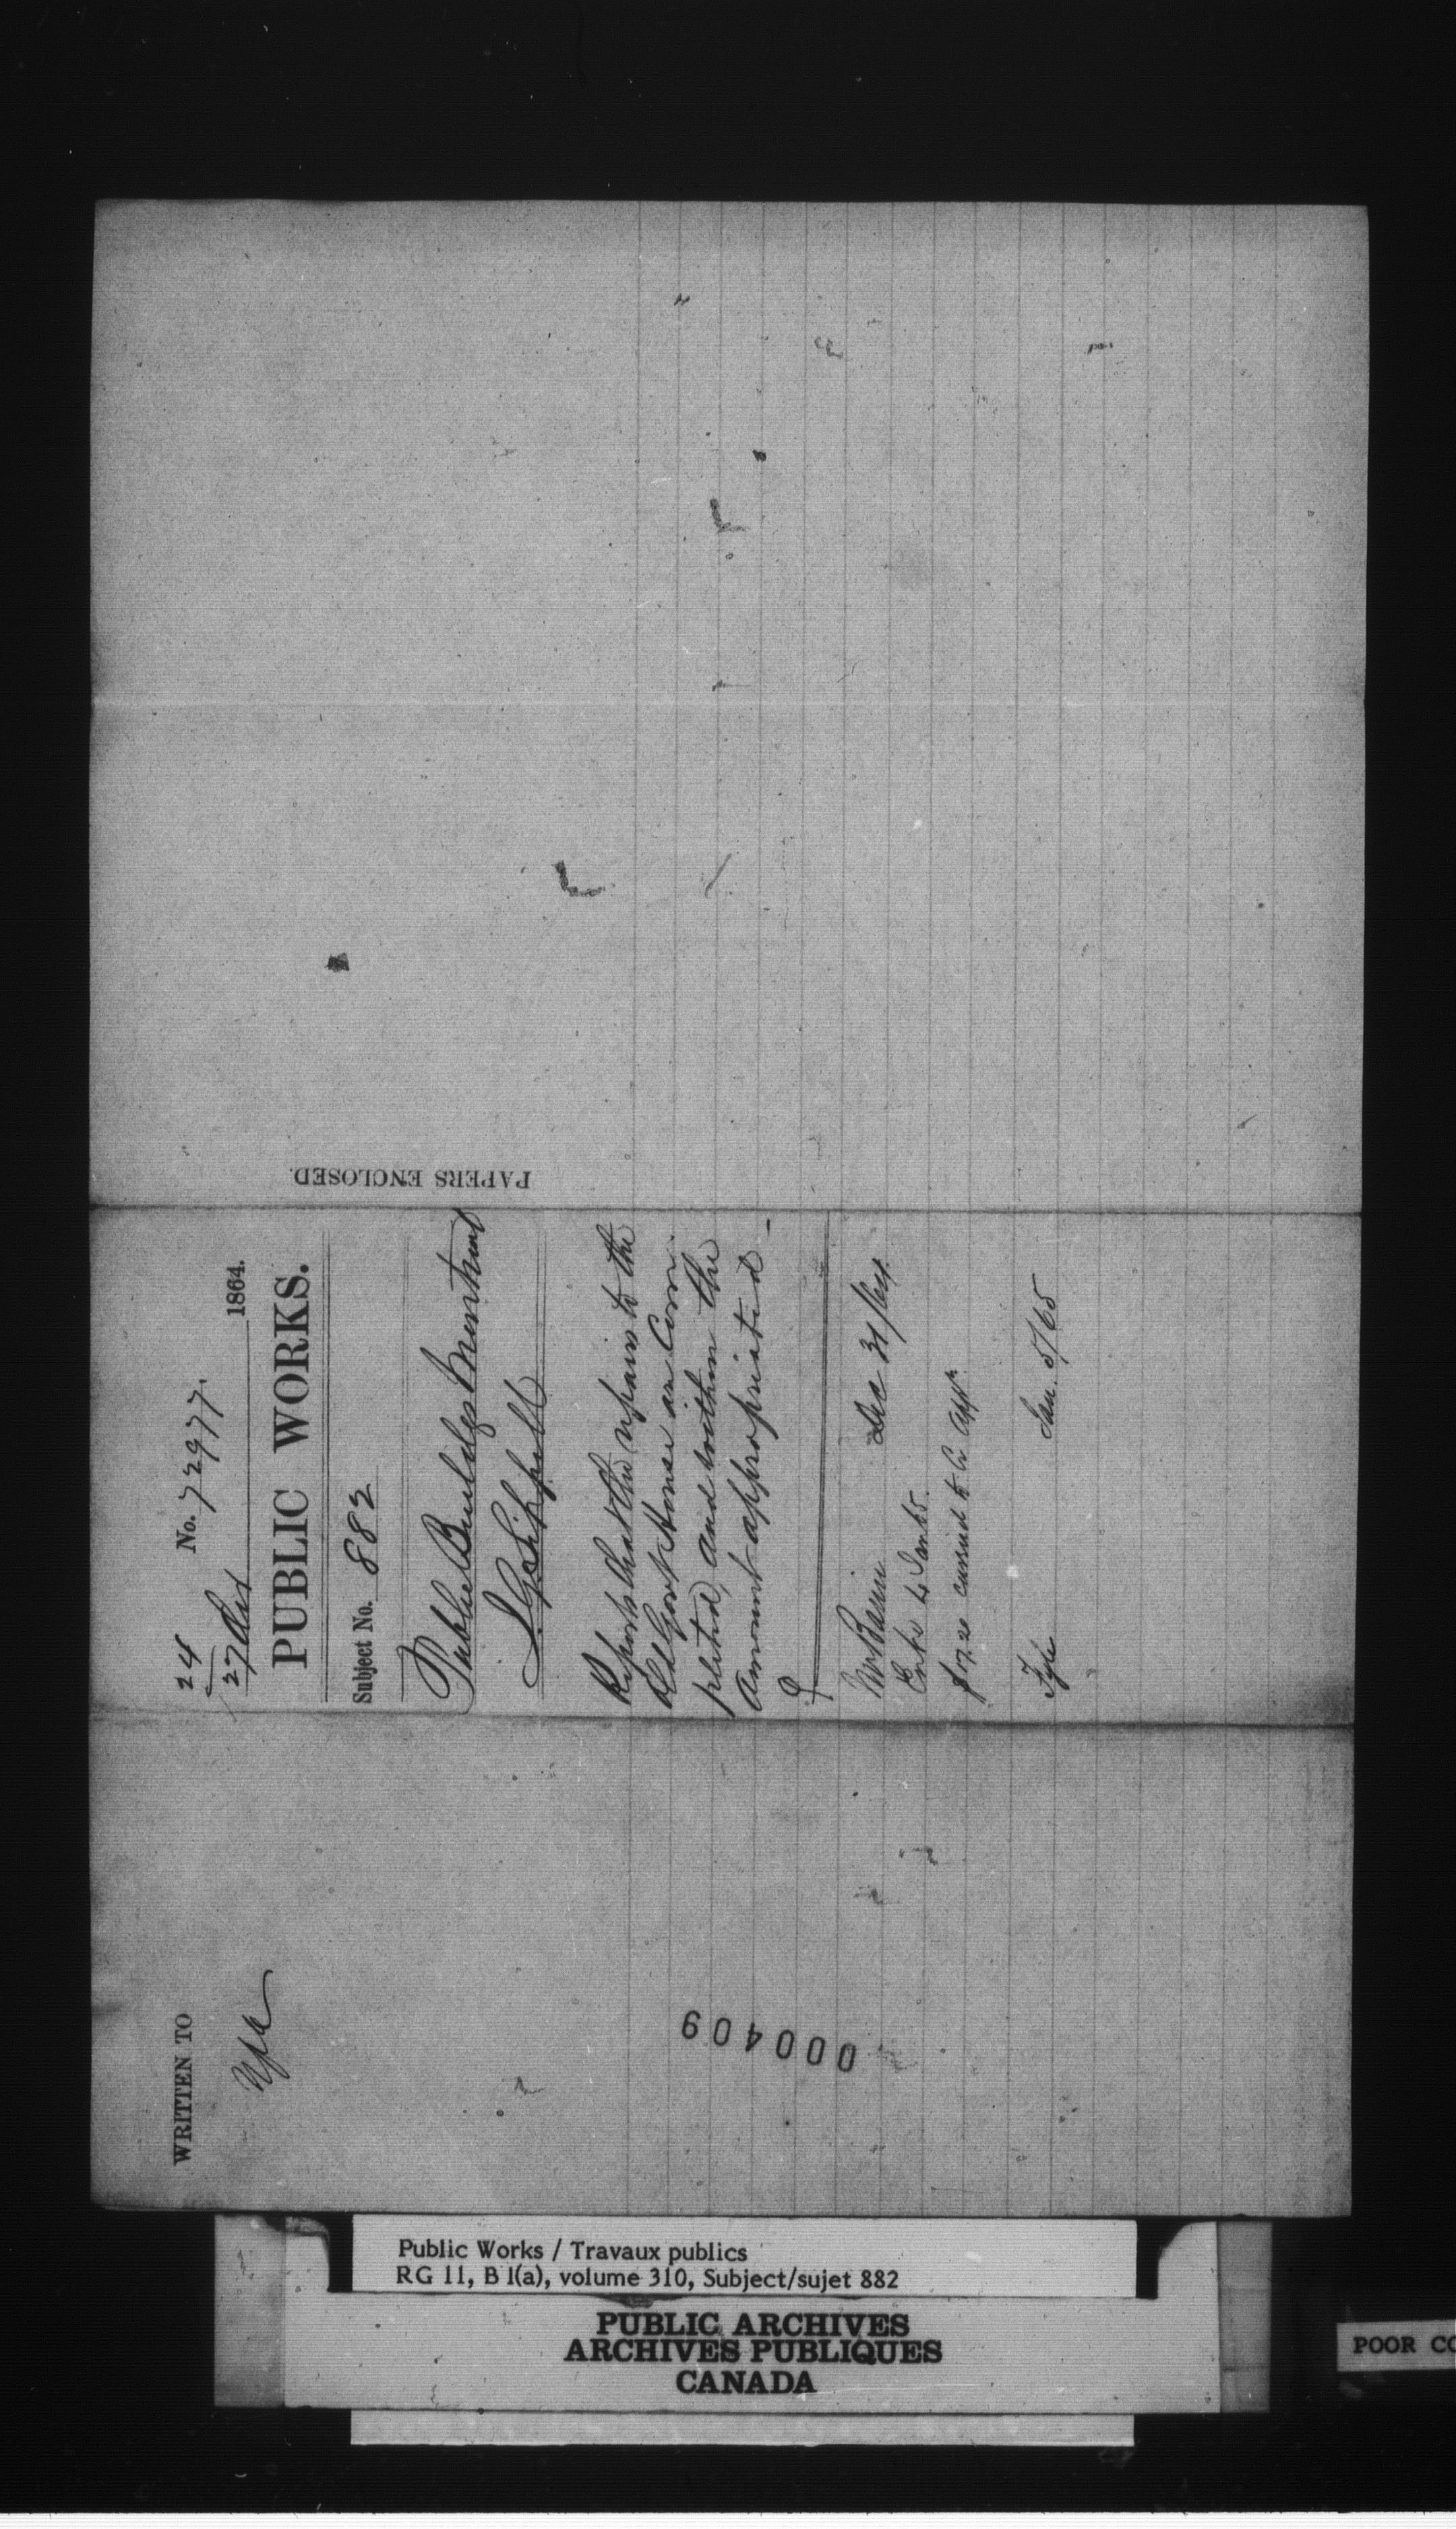 WRITTEN TO
24
27 Dec 1864.
No. 72977.
PUBLIC WORKS.
Subject No. 882
Public Buildgs Montreal
Reports that the repairs to the
Old Govt House are Com-
pleted, and within the
amount appropriated -
Mr Baine Dec 31/64
Jan. 5/65
PAPERS ENCLOSED.
000409
Public Works / Travaux publics
RG 11, B 1(a), volume 310, Subject/sujet 882
PUBLIC ARCHIVES
ARCHIVES PUBLIQUES
CANADA
POOR CO